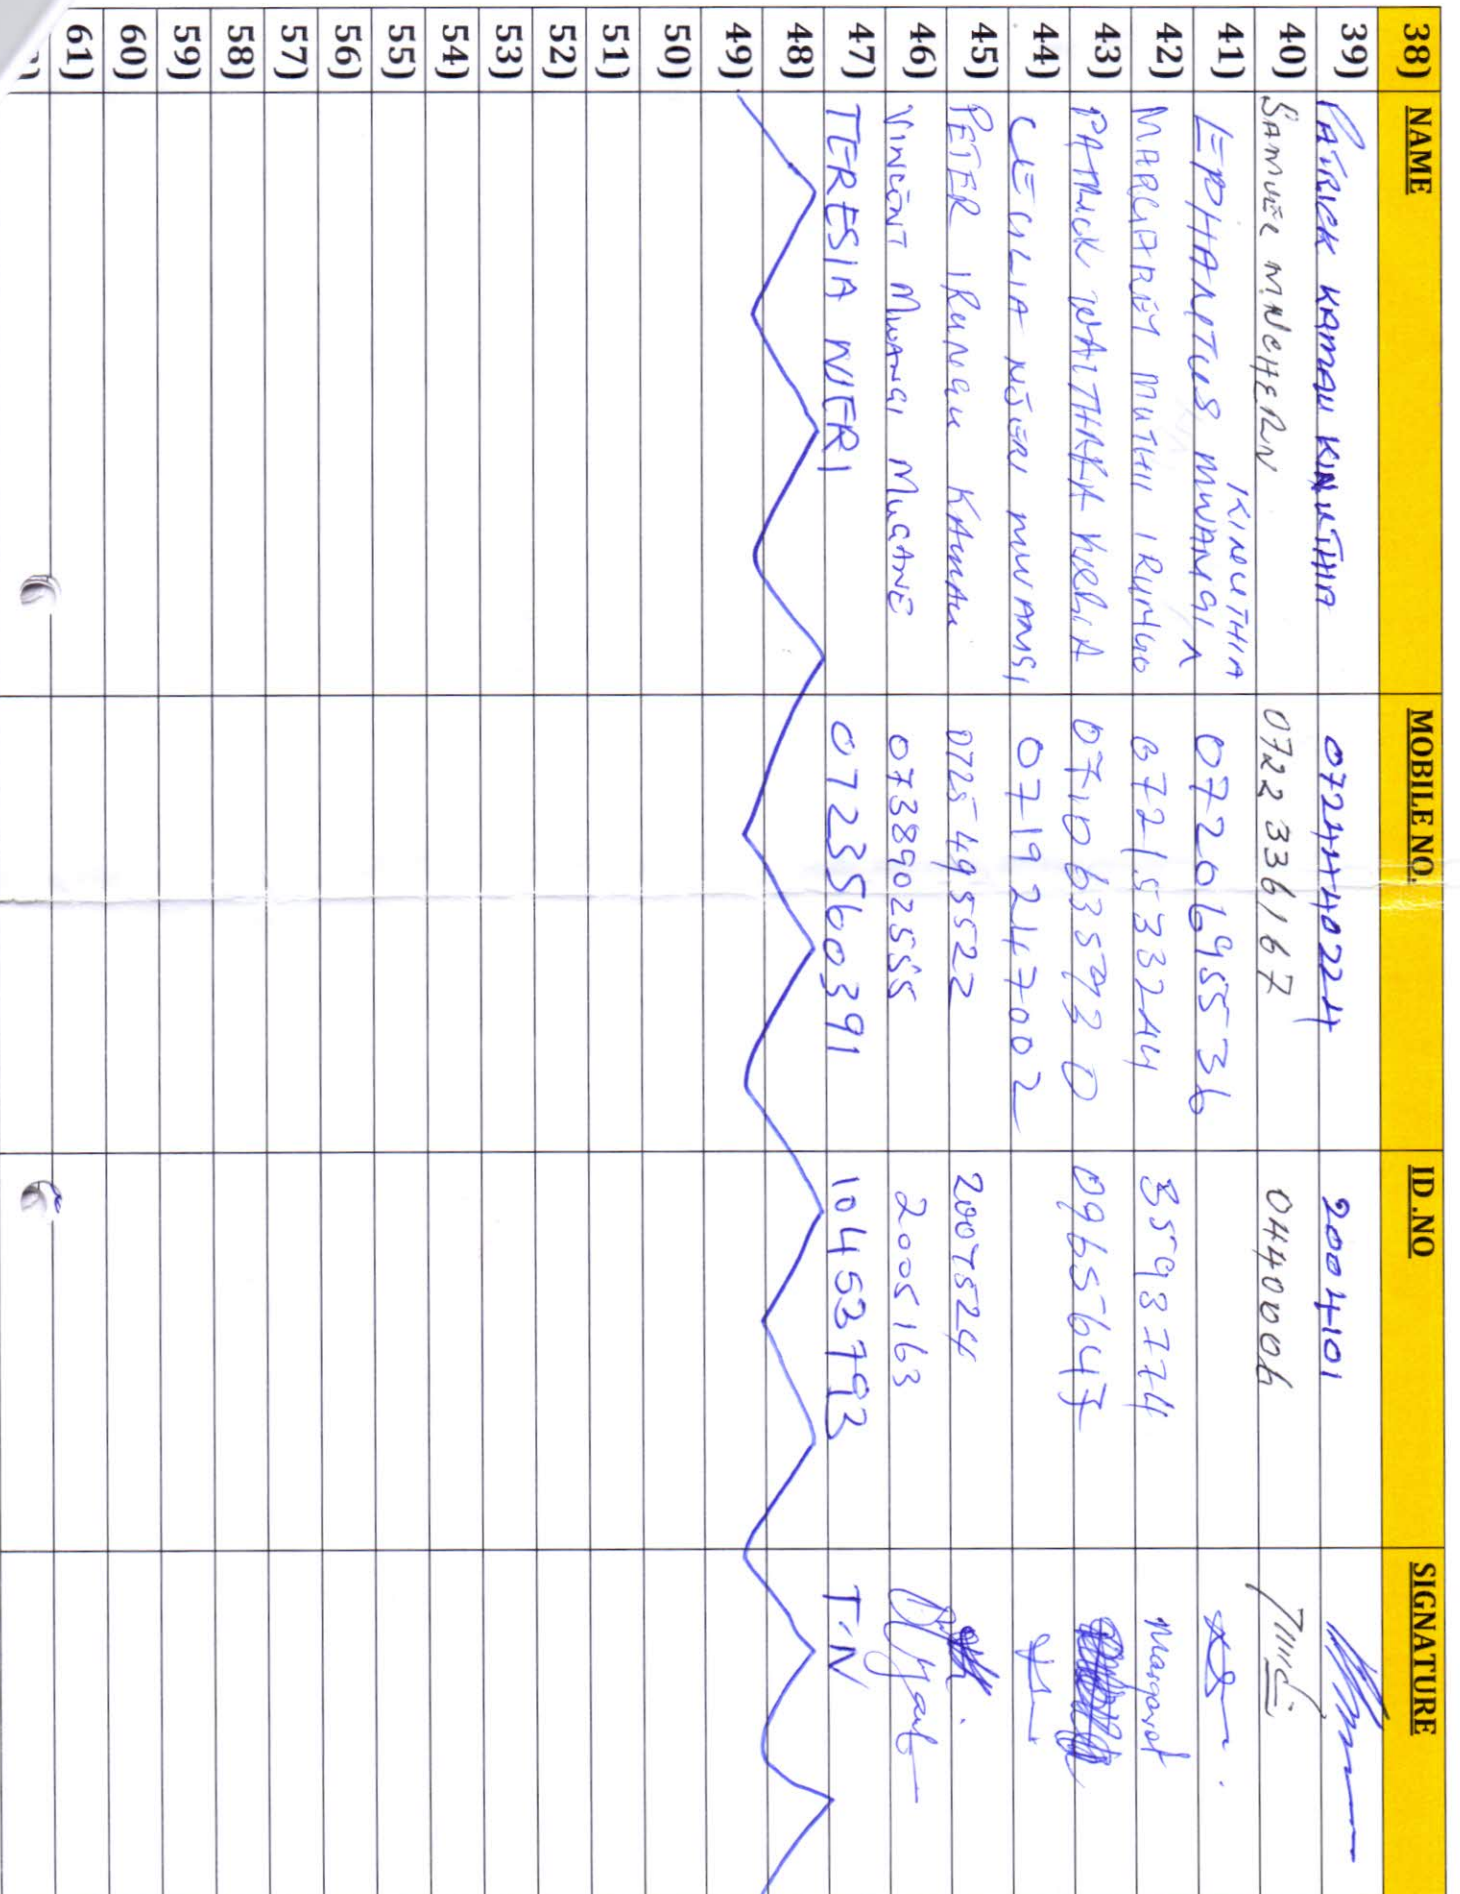 38) NAME MOBILE NO. ID.NO SIGNATURE
39) PATRICK KAMAU KINUTHIA 0724440224 2004101
40) SAMUEL 0722336167 0440006
KINUTHIA
41) EPHANTUS MWANGI ^ 0720695536
42) MARGARET MUTHII IRUNGU 0721533244 3598774 Margaret
43) PATRICK WAITHAKA 0710635920 09655647
44) CECILIA NJERI MWANGI 0719247002
45) PETER IRUNGU KAMAU 0725495522 2007524
46) VINCENT MWANGI MUGANE 0738902555 2005163
47) TERESIA NJERI 0723560391 10453793 T.N
48)
49)
50)
51)
52)
53)
54)
55)
56)
57)
58)
59)
60)
61)